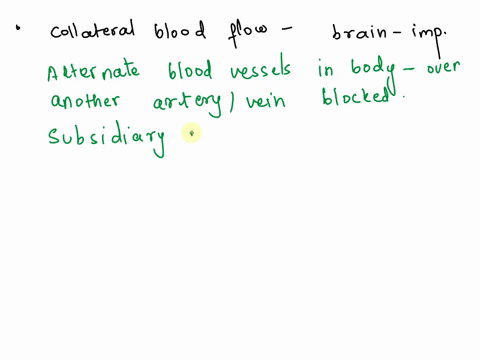 • Collateral blood flow - brain - imp.
Alternate blood vessels in body - over
another artery/vein blocked.
Subsidiary